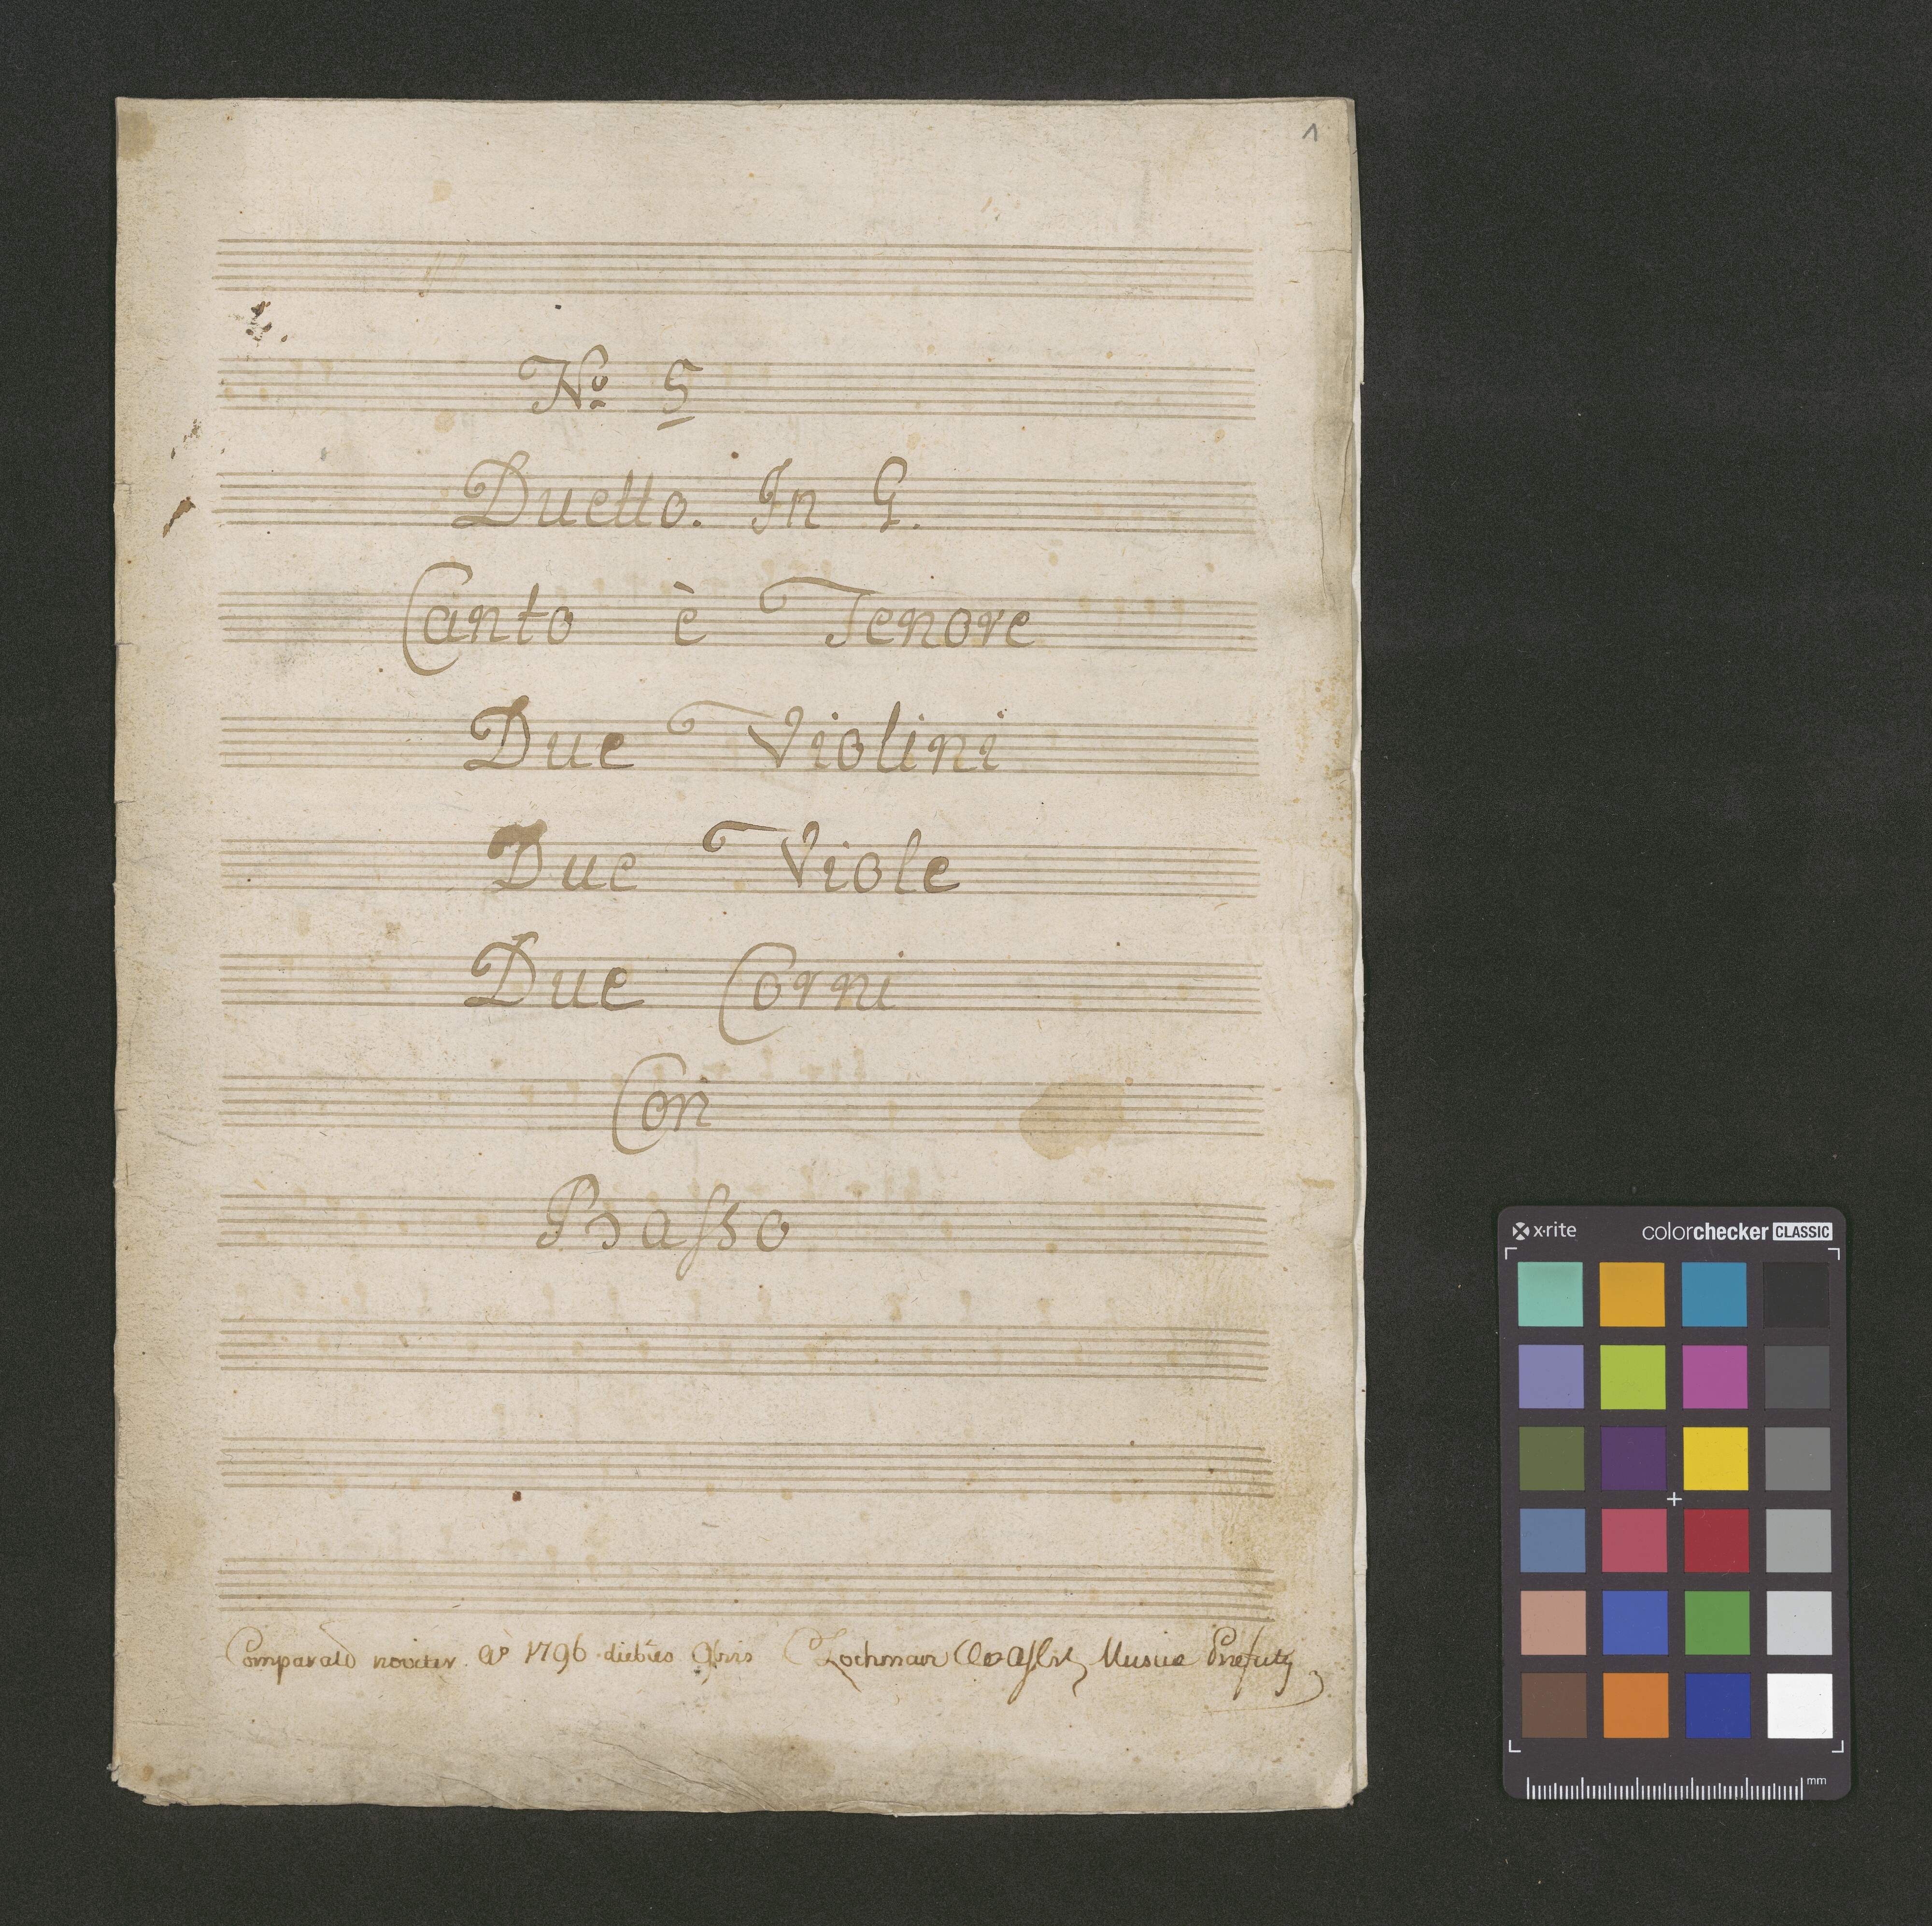 1
No 5
Duetto. In G.
Canto è Tenore
Due Violini
Due Viole
Due Corni
Con
Basso
Comparato noviter. Ao 1796 diebus 9bris
x-rite
colorchecker CLASSIC
mm